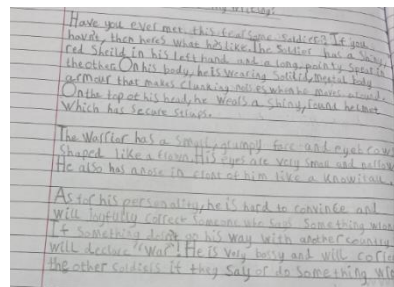 Have you ever met this fearsome soldier? If you
havn't, then here's what he's like. The Soldier has a Shiny,
red Sheild in his left hand and a long, pointy Spear in
the other. On his body, he is wearing Solied, metal body
armour that makes clanking noises when he moves around.
On the top of his head, he wears a shiny, round helmet
which has secure straps.
The Warrior has a small, grumpy face and eyebrow
Shaped like a frown. His eyes are very small and narrow
He also has a nose in front of him like a Knowitall.
As for his personality, he is hard to convince and
will joyfully correct someone who says Something wron
If something doesn't go his way with another country
will declare "War"! He is very bossy and will
the other soldiers if they say or do something